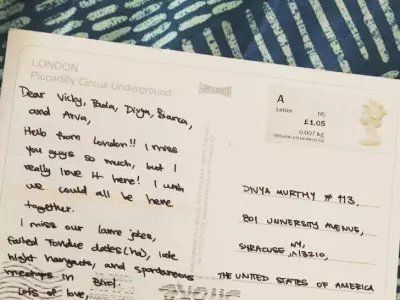 LONDON
Piccadilly Circus Underground
Dear Vicky, Paola, Divya, Bianca,
and Arva,
Hello from London!! I miss
you guys so much, but I
really love it here! I wish
we could all be here
together.
I miss our lame jokes,
failed fondue dates (ha), late
night hangouts, and spontaneous
meetups in
Lots of love,
A
Letter
£1.05
0.007 kg
DIVYA MURTHY # 113,
801 UNIVERSITY AVENUE,
SYRACUSE, NY,
13210,
THE UNITED STATES OF AMERICA